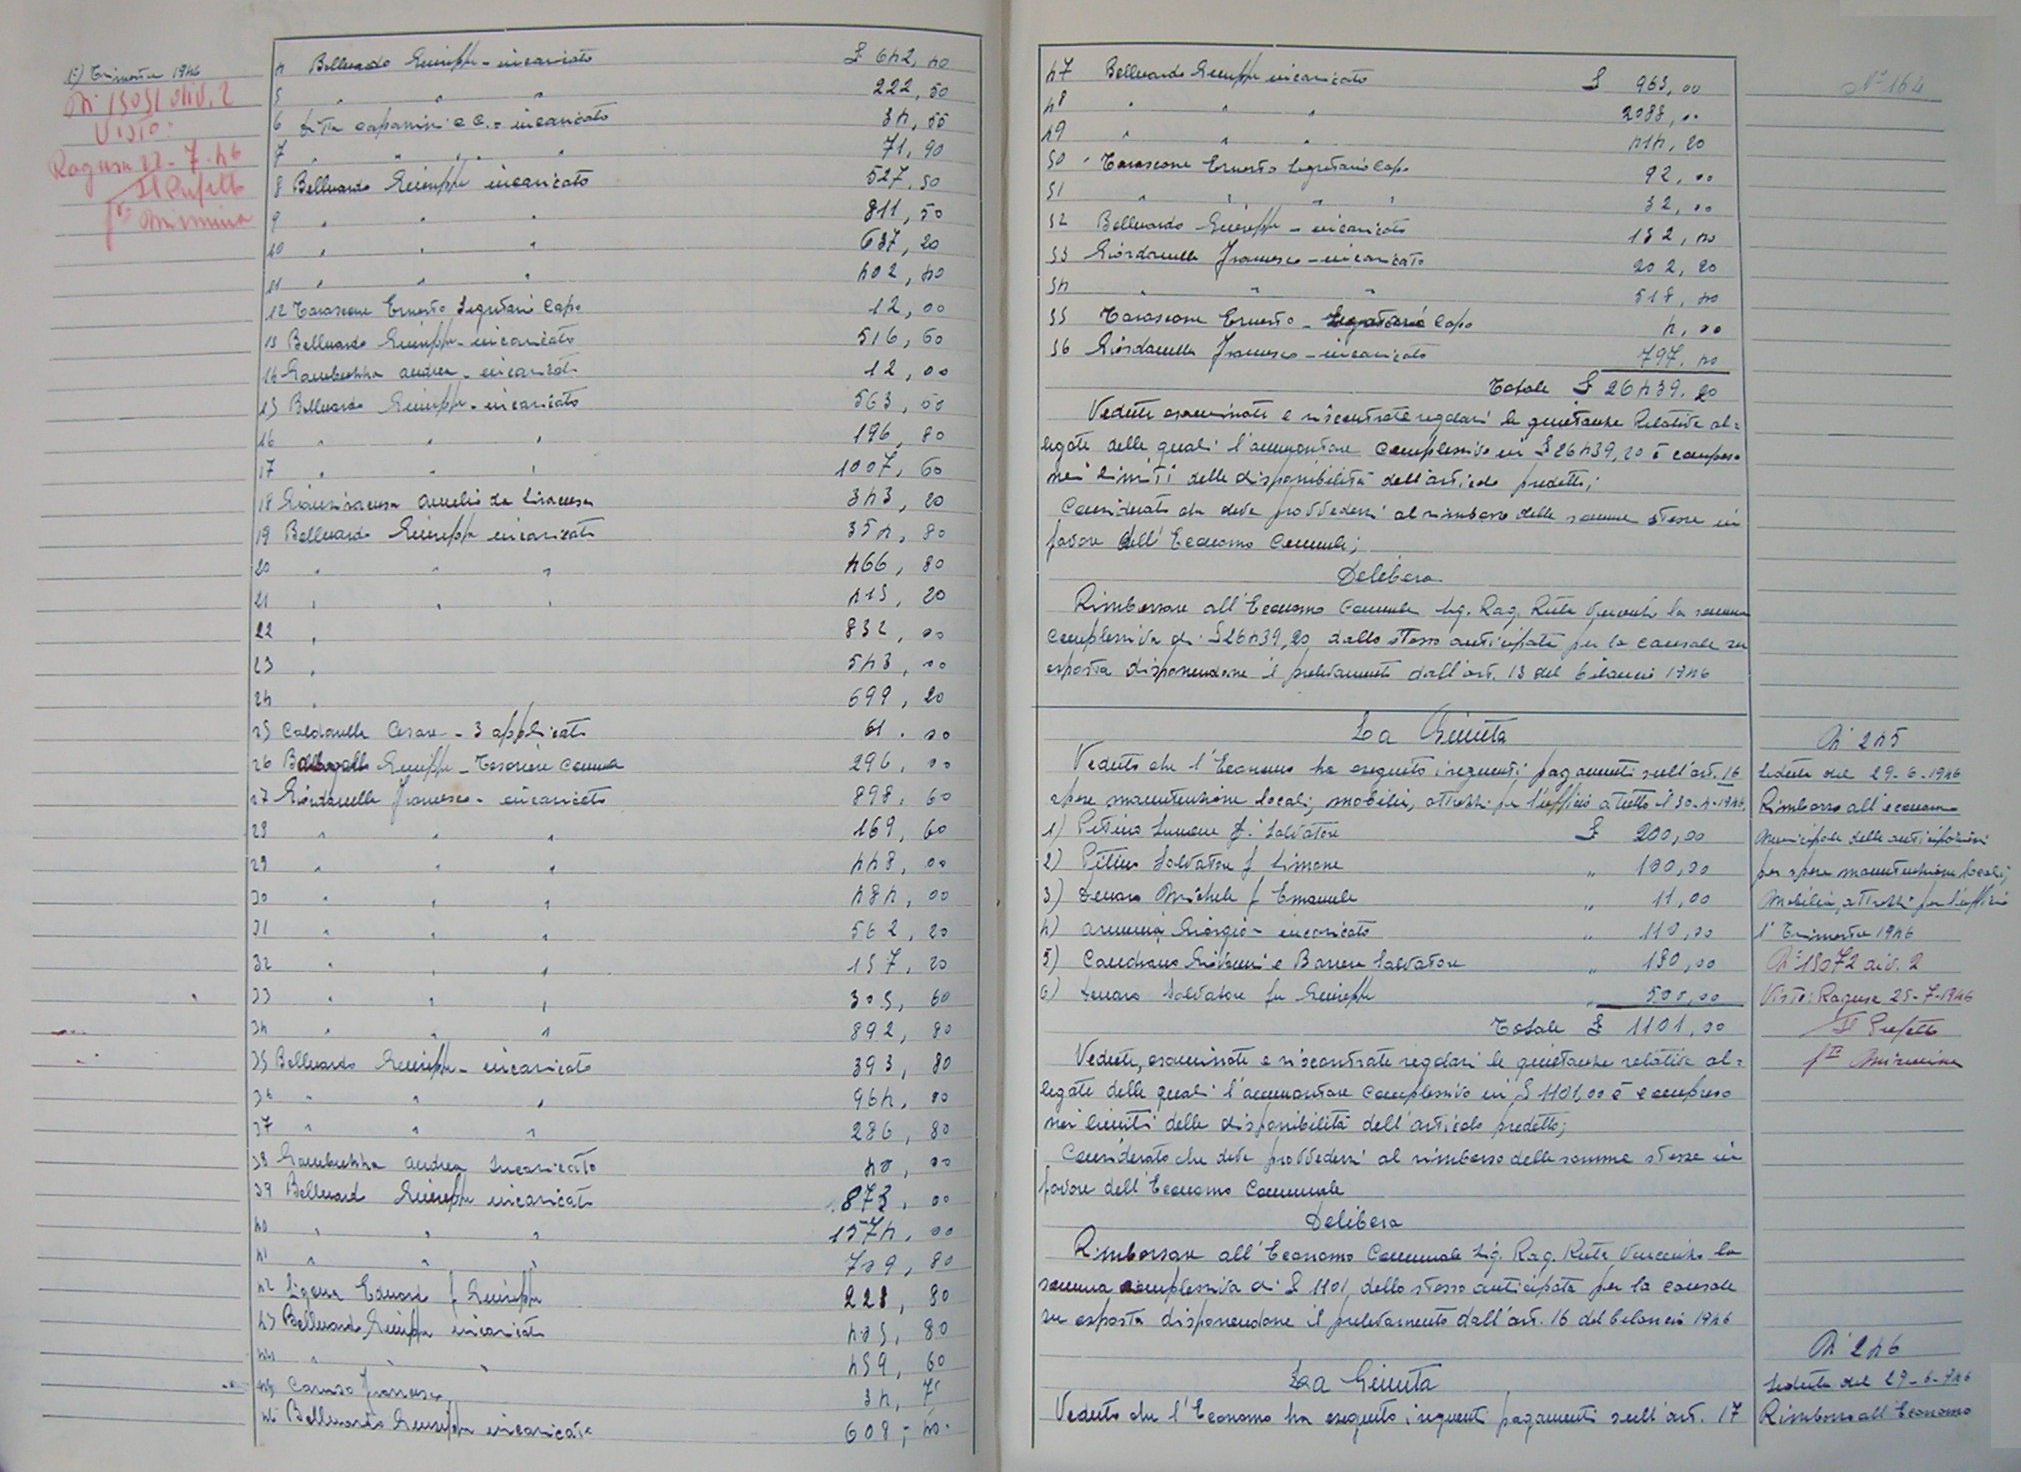 1°) Trimestre 1946
N° 15051 div. 2
Visto:
Ragusa 22-7-46
Il Prefetto
f.to Mirmina
4 Belluardo Giuseppe - incaricato £ 642,40
5 " " " 222,50
6 Ditta Capanni e C. - incaricato 34,55
7 " " " " 71,90
8 Belluardo Giuseppe incaricato 527,50
9 " " " 811,50
10 " " " 637,20
11 " " " 402,40
12 Tarascone Ernesto Segretario Capo 12,00
13 Belluardo Giuseppe - incaricato 516,60
14 Gambuzza Andrea - incaricato 12,00
15 Belluardo Giuseppe - incaricato 563,00
16 " " " 196,80
17 " " " 1007,60
18 Aurelio da Siracusa 343,20
19 Belluardo Giuseppe incaricato 354,80
20 " " " 466,80
21 " " " 415,20
22 " 832,00
23 " 543,00
24 " 699,20
25 Caldarella Cesare - 3 applicato 61.00
26 Giuseppe - Tesoriere Comunale 296,00
27 Giordanella Francesco - incaricato 898,60
28 " " " 169,60
29 " " " 448,00
30 " " " 484,00
31 " " " 562,20
32 " " " 157,20
33 " " " 305,60
34 " " " 892,80
35 Belluardo Giuseppe - incaricato 393,80
36 " " " 964,80
37 " " " 286,80
38 Gambuzza Andrea Incaricato 40,00
39 Belluardo Giuseppe incaricato 873,00
40 " " " 1574,00
41 " " " 709,80
42 Ligama Edoardo f Giuseppe 228,80
43 Belluardo Giuseppe incaricato 405,80
44 " " " 459,60
45 Caruso Francesco 34,
46 Belluardo Giuseppe incaricato 608,40
47 Belluardo Giuseppe incaricato £ 963,00
48 " " " 2088,00
49 " " " 414,20
50 Tarascone Ernesto Segretario Capo 92,00
51 " " " " 32,00
52 Belluardo Giuseppe - incaricato 152,40
53 Giordanella Francesco - incaricato 202,20
54 " " " 518,40
55 Tarascone Ernesto - Segretario Capo 4,00
56 Giordanella Francesco - incaricato 797,40
Totale £ 26439,20
Vedute esaminate e riscontrate regolari le quietanze relative al=
legate delle quali l'ammontare complessivo in £ 26439,20 è compreso
nei limiti delle disponibilità dell'articolo predetto;
Considerato che deve provvedersi al rimborso delle somme stesse in
favore dell'Economo Comunale;
Delibera
Rimborsare all'Economo Comunale Sig. Rag. Vincenzo la somma
complessiva di £ 26439,20 dallo stesso anticipata per la causale su
esposta disponendone il prelevamento dall'art. 13 del bilancio 1946
N° 164
La Giunta
Veduto che l'Economo ha eseguito i seguenti pagamenti sull'art. 16
spese manutenzione locali, mobili, attrezzi per l'ufficio a tutto il 30-4-1946.
1) Pitino Simone f. Salvatore £ 200,00
2) Pitino Salvatore f Simone " 100,00
3) Michele f Emanuele " 11,00
4) Giorgio - incaricato " 110,00
5) Giovanni e Salvatore " 180,00
6) Salvatore fu Giuseppe " 500,00
Totale £ 1101,00
Vedute, esaminate e riscontrate regolari le quietanze relative al=
legate delle quali l'ammontare complessivo in £ 1101,00 è compreso
nei limiti delle disponibilità dell'articolo predetto;
Considerato che deve provvedersi al rimborso delle somme stesse in
favore dell'Economo Comunale
Delibera
Rimborsare all'Economo Comunale Sig. Rag. Vincenzo la
somma complessiva di £ 1101, dallo stesso anticipata per la causale
su esposta disponendone il prelevamento dall'art. 16 del bilancio 1946
La Giunta
Veduto che l'Economo ha eseguito i seguenti pagamenti sull'art. 17
N° 245
Seduta del 29-6-1946
Rimborso all'economo
Municipale delle anticipazioni
per spese manutenzione locali,
Mobili, attrezzi per l'ufficio
1° Trimestre 1946
N° 15072 div. 2
Visto: Ragusa 25-7-1946
Il Prefetto
f.to Mirmina
N° 246
Seduta del 29-6-946
Rimborso all'Economo